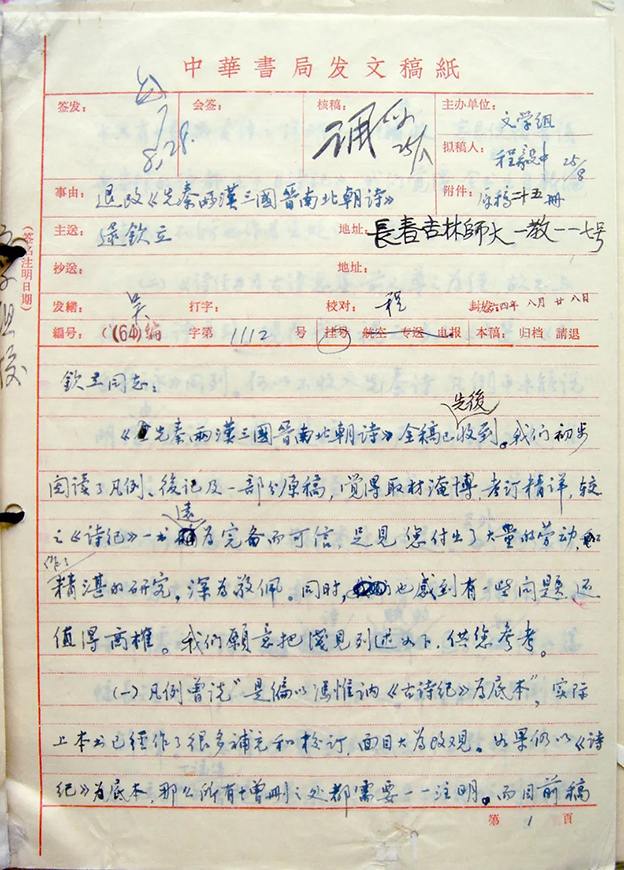 中華書局发文稿紙
签发： 会签： 核稿： 主办单位： 文学组
8.29. 25/8 拟稿人： 程毅中 25/8
事由： 退改《先秦兩漢三國晉南北朝詩》 附件： 原稿二十五册
主送： 逯欽立 地址： 長春吉林師大一教一一七号
抄送： 地址：
发稿： 吴 打字： 校对： 程 封发： 六四年八月廿八
编号： (64)编 字第 1112 号 挂号 航空 专送 电报 本稿： 归档 請退
(签名注明日期)
欽立同志：
《先秦兩漢三國晉南北朝詩》全稿已先後收到。我们初步
阅读了凡例、後记及一部分原稿，觉得取材淹博，考订精详，较
之《诗纪》一书遠为完备而可信，足见您付出了大量的劳动，
作了精湛的研究，深为敬佩。同时，也感到有一些问题还
值得商榷。我们願意把淺见列述如下，供您参考。
(一)凡例曾说“是编以冯惟讷《古诗纪》为底本”，实际
上本书已經作了很多補充和校订，面目大为改观。如果仍以《诗
纪》为底本，那么所有增删之处都需要一一注明。而目前稿
第 1 頁